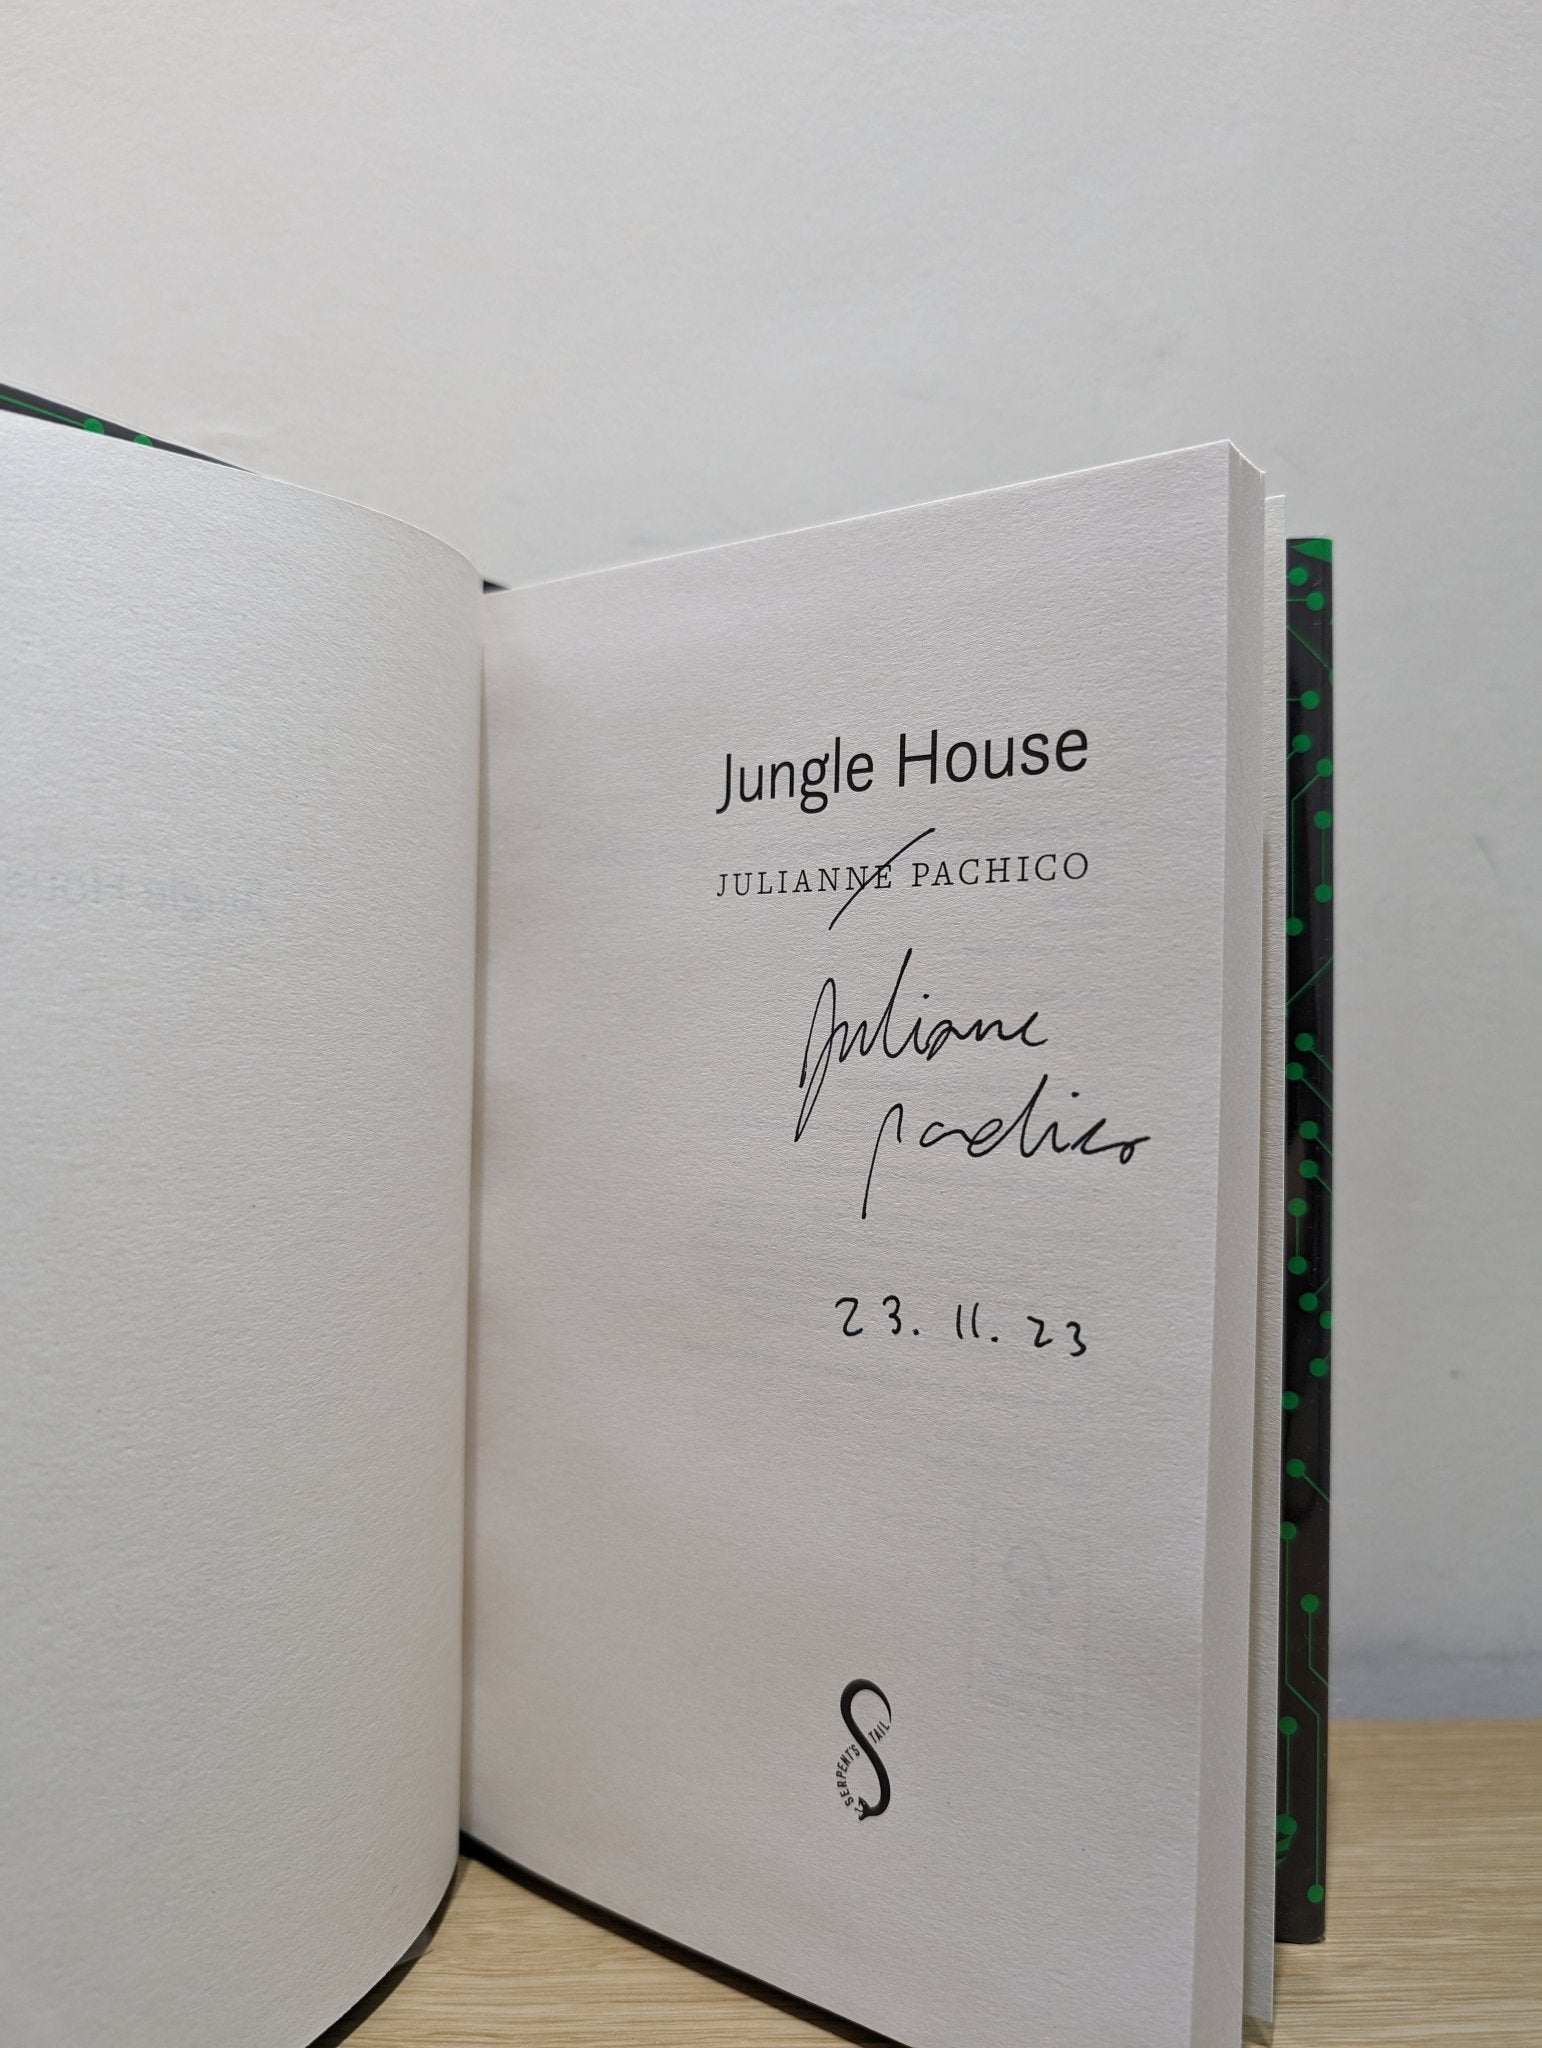 Jungle House
JULIANNE PACHICO
Julianne
Pachico
23.11.23
SERPENT'S TAIL